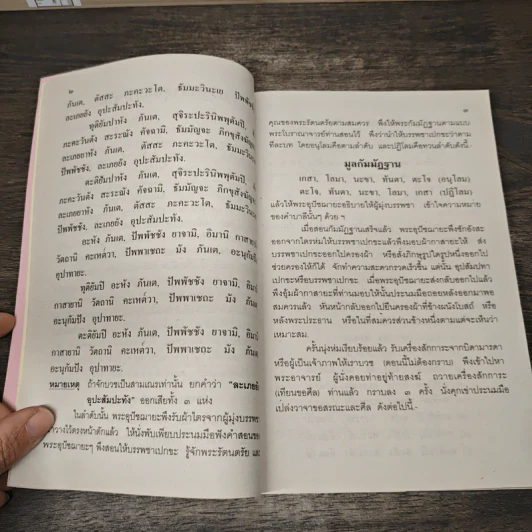 ๒
ภันเต, ตัสสะ ภะคะวะโต, ธัมมะวินะเย ปัพพัช
ละเภยยัง อุปะสัมปะทัง.
ทุติยัมปาหัง ภันเต, สุจิระปะรินิพพุตัมปิ,
ภะคะวันตัง สะระณัง คัจฉามิ, ธัมมัญจะ ภิกขุสังฆัญ
ละเภยยาหัง ภันเต, ตัสสะ ภะคะวะโต, ธัมมะวิ
ปัพพัชชัง, ละเภยยัง อุปะสัมปะทัง.
ตะติยัมปาหัง ภันเต, สุจิระปะรินิพพุตัมปิ,
ภะคะวันตัง สะระณัง คัจฉามิ, ธัมมัญจะ ภิกขุสังฆัญ
ละเภยยาหัง ภันเต, ตัสสะ ภะคะวะโต, ธัมมะวิ
ปัพพัชชัง, ละเภยยัง อุปะสัมปะทัง.
อะหัง ภันเต, ปัพพัชชัง ยาจามิ, อิมานิ กาสา
วัตถานิ คะเหต๎วา, ปัพพาเชถะ มัง ภันเต, อะนุกัมปัง
อุปาทายะ.
ทุติยัมปิ อะหัง ภันเต, ปัพพัชชัง ยาจามิ, อิมานิ
กาสายานิ วัตถานิ คะเหต๎วา, ปัพพาเชถะ มัง ภันเต,
อะนุกัมปัง อุปาทายะ.
ตะติยัมปิ อะหัง ภันเต, ปัพพัชชัง ยาจามิ, อิมานิ
กาสายานิ วัตถานิ คะเหต๎วา, ปัพพาเชถะ มัง ภันเต,
อะนุกัมปัง อุปาทายะ.
หมายเหตุ ถ้าจักบวชเป็นสามเณรเท่านั้น ยกคำว่า "ละเภยยัง
อุปะสัมปะทัง" ออกเสียทั้ง ๓ แห่ง
ในลำดับนั้น พระอุปัชฌายะพึงรับผ้าไตรจากผู้มุ่งบรรพชา
มาวางไว้ตรงหน้าตักแล้ว ให้นั่งพับเพียบประนมมือฟังคำสอนของ
พระอุปัชฌายะๆ พึงสอนให้บรรพชาเปกขะ รู้จักพระรัตนตรัย และ
๓
คุณของพระรัตนตรัยตามสมควร พึงให้พระกัมมัฏฐานตามแบบ
พระโบราณาจารย์ท่านสอนไว้ พึงว่านำให้บรรพชาเปกขะว่าตาม
ทีละบท โดยอนุโลมคือตามลำดับ และปฏิโลมคือทวนลำดับดังนี้.-
มูลกัมมัฏฐาน
เกสา, โลมา, นะขา, ทันตา, ตะโจ (อนุโลม)
ตะโจ, ทันตา, นะขา, โลมา, เกสา (ปฏิโลม)
แล้วให้พระอุปัชฌายะอธิบายให้ผู้มุ่งบรรพชา เข้าใจความหมาย
ของคำบาลีนั้นๆ ด้วย ฯ
เมื่อสอนกัมมัฏฐานเสร็จแล้ว พระอุปัชฌายะพึงชักอังสะ
ออกจากไตรห่มให้บรรพชาเปกขะแล้วพึงมอบผ้ากาสายะให้ ส่ง
บรรพชาเปกขะออกไปครองผ้า หรือสั่งภิกษุรูปใดรูปหนึ่งออกไป
ช่วยครองให้ก็ได้ จักทำความสะดวกรวดเร็วขึ้น แต่นั้น อุปสัมปทา
เปกขะหรือบรรพชาเปกขะ เมื่อพระอุปัชฌายะสั่งกลับออกไปแล้ว
พึงอุ้มผ้ากาสายะที่ท่านมอบให้นั้นประนมมือถอยหลังออกมาพอ
สมควรแล้ว หันหน้ากลับออกไปยืนครองผ้าที่ข้างผนังโบสถ์ หรือ
หลังพระประธาน หรือในที่สมควรส่วนข้างหนึ่งตามแต่จะเห็นว่า
เหมาะสม.
ครั้นนุ่งห่มเรียบร้อยแล้ว รับเครื่องสักการะจากบิดามารดา
หรือผู้เป็นเจ้าภาพให้เราบวช (ตอนนี้ไม่ต้องกราบ) พึงเข้าไปหา
พระอาจารย์ ผู้นั่งคอยท่าอยู่ท้ายสงฆ์ ถวายเครื่องสักการะ
(เทียนขอศีล) ท่านแล้ว กราบลง ๓ ครั้ง นั่งคุกเข่าประนมมือ
เปล่งวาจาขอสรณะและศีล ดังต่อไปนี้.-